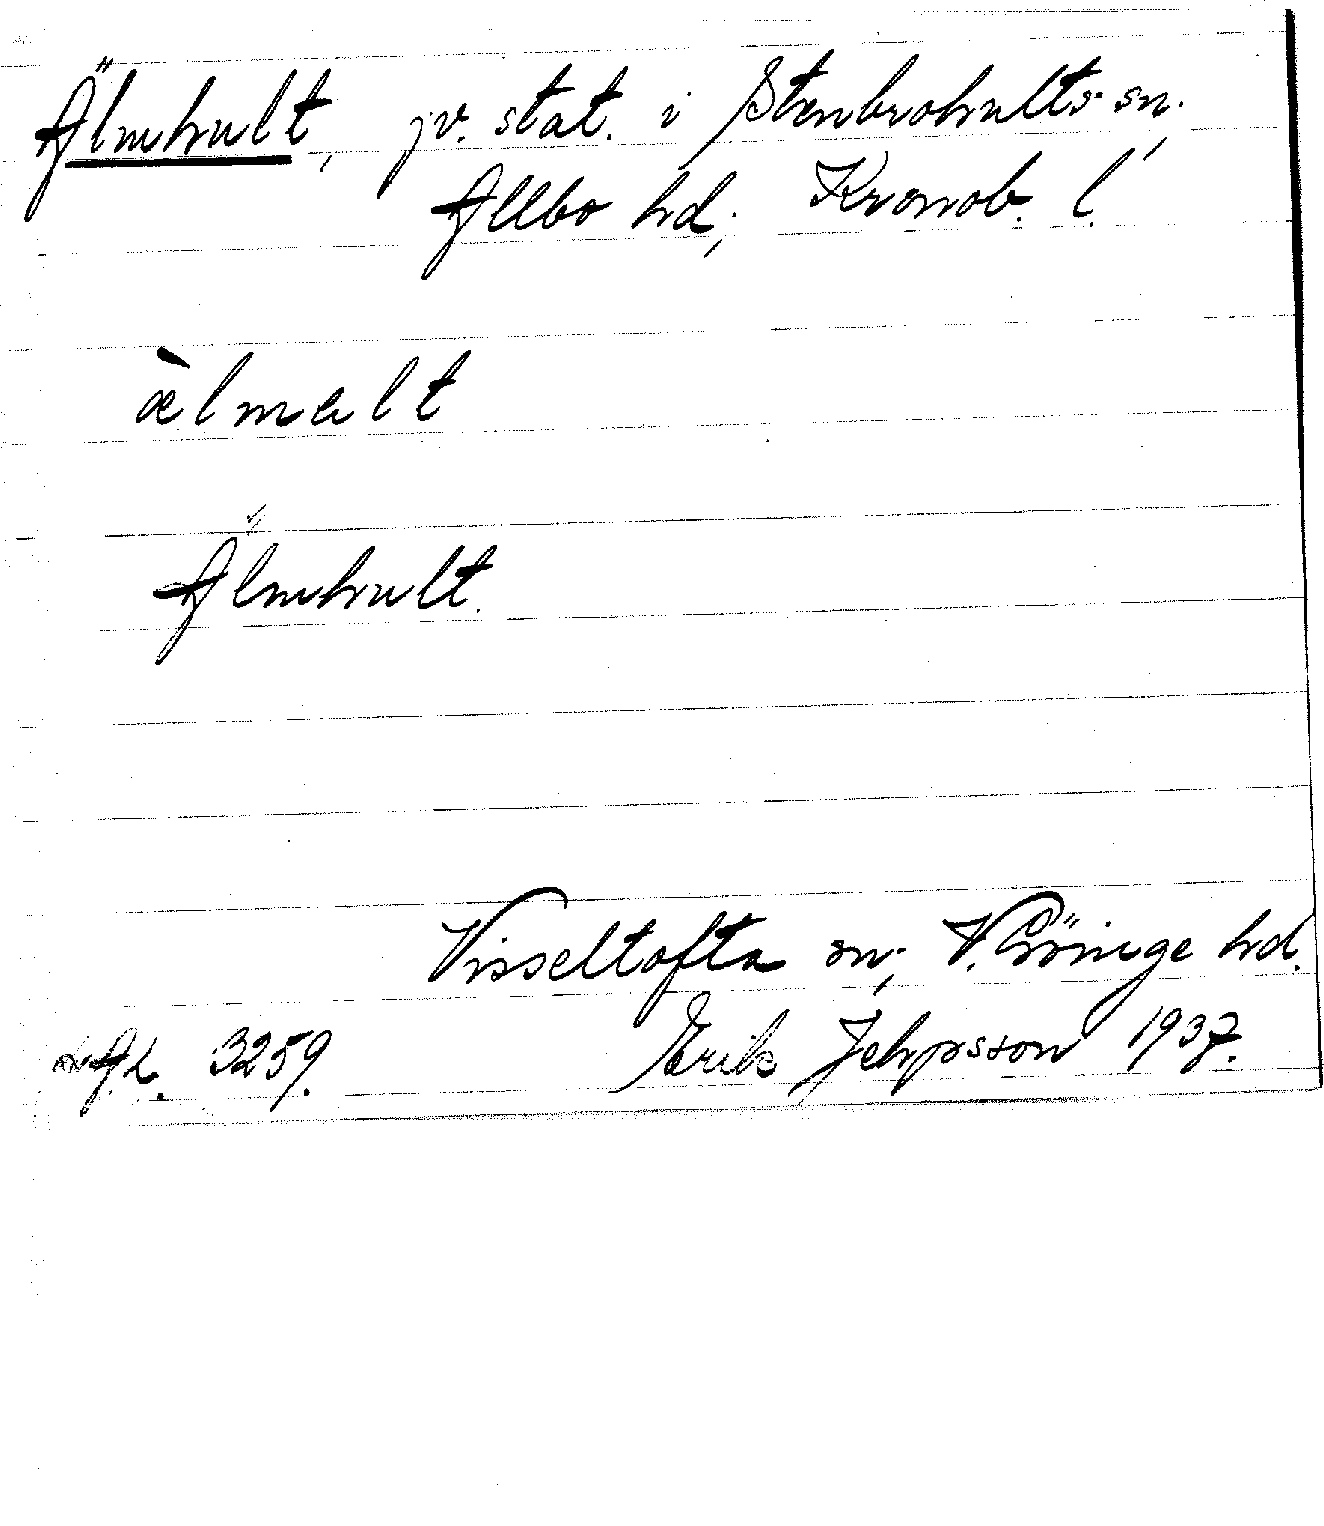 Älmhult, jv. stat. i Stenbrohults sn.,
Allbo hd., Kronob. l.
æ̀lmalt
Älmhult.
Visseltofta sn., V. Göinge hd.
3259. Erik Jeppsson 1937.